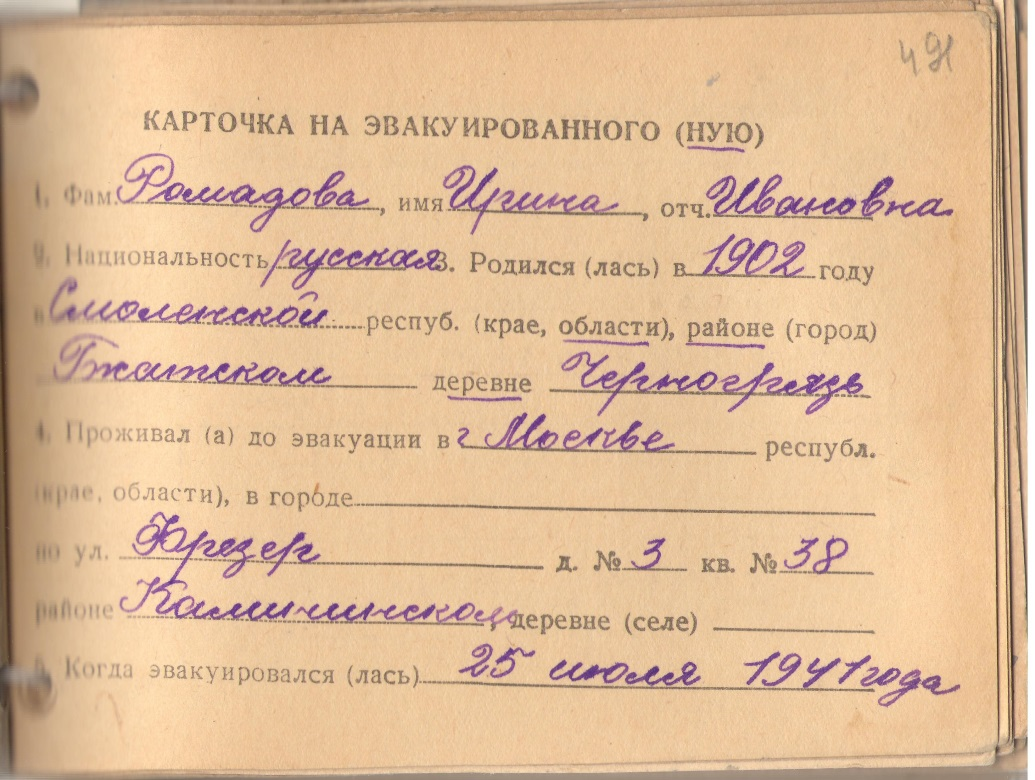 491
КАРТОЧКА НА ЭВАКУИРОВАННОГО (НУЮ)
1. Фам. Ромадова, имя Ирина, отч. Ивановна
2. Национальность русская 3. Родился (лась) в 1902 году
в Смоленской респуб. (крае, области), районе (город)
Гжатском деревне Черногрязь
4. Проживал (а) до эвакуации в г Москве республ.
(крае, области), в городе
по ул. Фрезер д. № 3 кв. № 38
районе Калининском, деревне (селе)
5. Когда эвакуировался (лась) 25 июля 1941 года